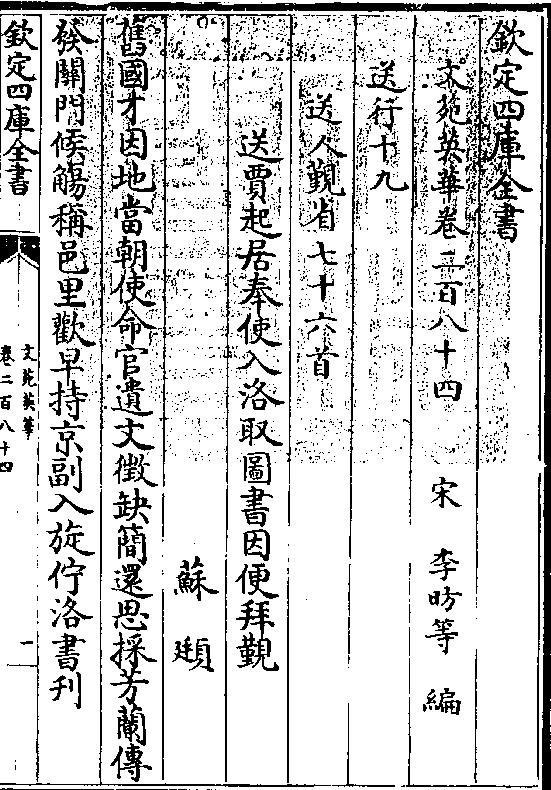 欽定四庫全書
文苑英華卷二百八十四　宋　李昉等　編
送行十九
送人覲省七十六首
送賈起居奉使入洛取圖書因便拜覲
蘇頲
舊國才因地當朝使命官遺文徴缺簡還思採芳蘭傳
發關門候觴稱邑里歡早持京副入旋佇洛書刋
欽定四庫全書
文苑英華
卷二百八十四
一